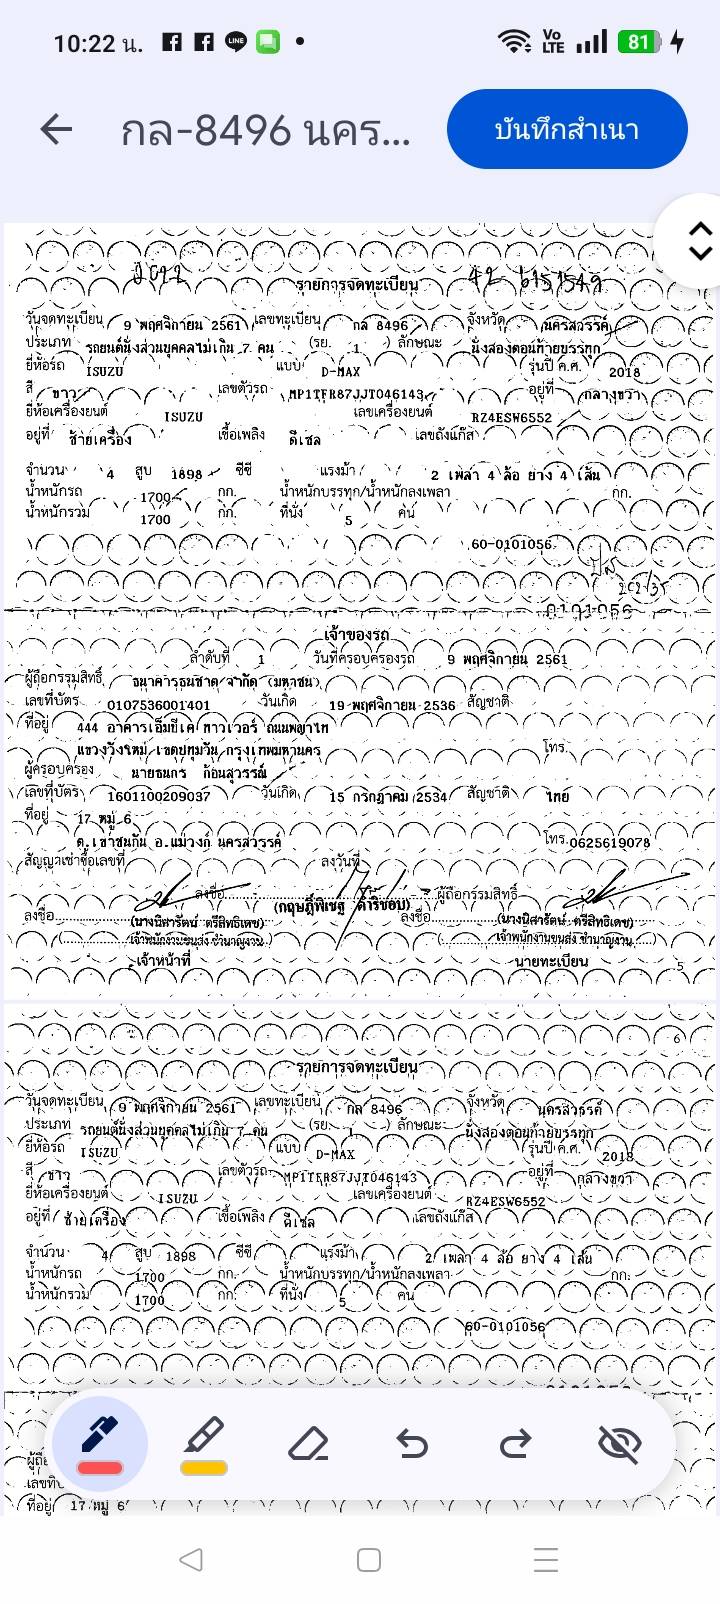 10:22 น.
VoLTE 81
กล-8496 นคร...
บันทึกสำเนา
รายการจดทะเบียน
วันจดทะเบียน 9 พฤศจิกายน 2561 เลขทะเบียน กล 8496 จังหวัด นครสวรรค์
ประเภท รถยนต์นั่งส่วนบุคคลไม่เกิน 7 คน (รย. 1 ) ลักษณะ นั่งสองตอนท้ายบรรทุก
ยี่ห้อรถ ISUZU แบบ D-MAX รุ่นปี ค.ศ. 2018
สี ขาว เลขตัวรถ MP1TFR87JJT046143 อยู่ที่ กลางขวา
ยี่ห้อเครื่องยนต์ ISUZU เลขเครื่องยนต์ RZ4ESW6552
อยู่ที่ ซ้ายเครื่อง เชื้อเพลิง ดีเซล เลขถังแก๊ส
จำนวน 4 สูบ 1898 ซีซี แรงม้า 2 เพลา 4 ล้อ ยาง 4 เส้น
น้ำหนักรถ 1700 กก. น้ำหนักบรรทุก/น้ำหนักลงเพลา กก.
น้ำหนักรวม 1700 กก. ที่นั่ง 5 คน
60-0101056
0101056
เจ้าของรถ
ลำดับที่ 1 วันที่ครอบครองรถ 9 พฤศจิกายน 2561
ผู้ถือกรรมสิทธิ์ ธนาคารธนชาต จำกัด (มหาชน)
เลขที่บัตร 0107536001401 วันเกิด 19 พฤศจิกายน 2536 สัญชาติ
ที่อยู่ 444 อาคารเอ็มบีเค ทาวเวอร์ ถนนพญาไท
แขวงวังใหม่ เขตปทุมวัน กรุงเทพมหานคร โทร.
ผู้ครอบครอง นายธนกร ก้อนสุวรรณ์
เลขที่บัตร 1601100209037 วันเกิด 15 กรกฎาคม 2534 สัญชาติ ไทย
ที่อยู่ 17 หมู่ 6
ต.เขาชนกัน อ.แม่วงก์ นครสวรรค์ โทร. 0625619078
สัญญาเช่าซื้อเลขที่ ลงวันที่
ลงชื่อ ผู้ถือกรรมสิทธิ์
(กฤษฎิ์พิเชฐ ดำริชอบ)
ลงชื่อ ลงชื่อ
(นางนิศารัตน์ ตรีสิทธิเดช) (นางนิศารัตน์ ตรีสิทธิเดช)
เจ้าพนักงานขนส่ง ชำนาญงาน เจ้าพนักงานขนส่ง ชำนาญงาน
เจ้าหน้าที่ นายทะเบียน
5
6
รายการจดทะเบียน
วันจดทะเบียน 9 พฤศจิกายน 2561 เลขทะเบียน กล 8496 จังหวัด นครสวรรค์
ประเภท รถยนต์นั่งส่วนบุคคลไม่เกิน 7 คน (รย. 1 ) ลักษณะ นั่งสองตอนท้ายบรรทุก
ยี่ห้อรถ ISUZU แบบ D-MAX รุ่นปี ค.ศ. 2018
สี ขาว เลขตัวรถ MP1TFR87JJT046143 อยู่ที่ กลางขวา
ยี่ห้อเครื่องยนต์ ISUZU เลขเครื่องยนต์ RZ4ESW6552
อยู่ที่ ซ้ายเครื่อง เชื้อเพลิง ดีเซล เลขถังแก๊ส
จำนวน 4 สูบ 1898 ซีซี แรงม้า 2 เพลา 4 ล้อ ยาง 4 เส้น
น้ำหนักรถ 1700 กก. น้ำหนักบรรทุก/น้ำหนักลงเพลา กก.
น้ำหนักรวม 1700 กก. ที่นั่ง 5 คน
60-0101056
ที่อยู่ 17 หมู่ 6